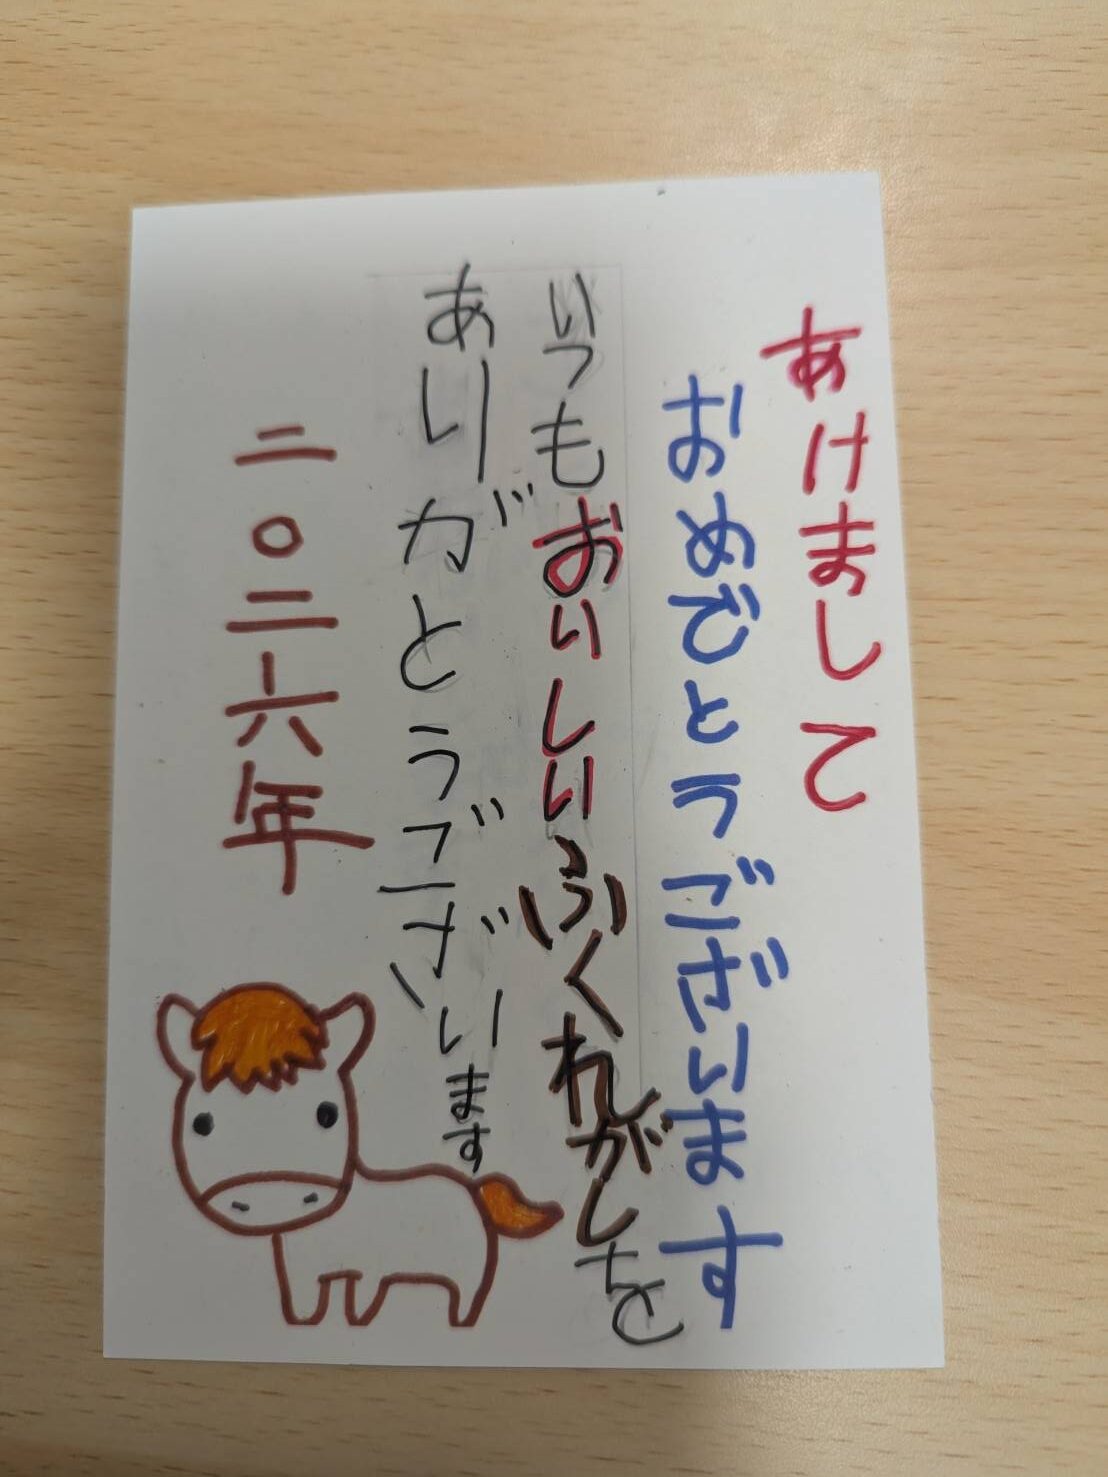 あけまして
おめでとうございます
いつもおいしいふくれがしを
ありがとうございます
二〇二六年